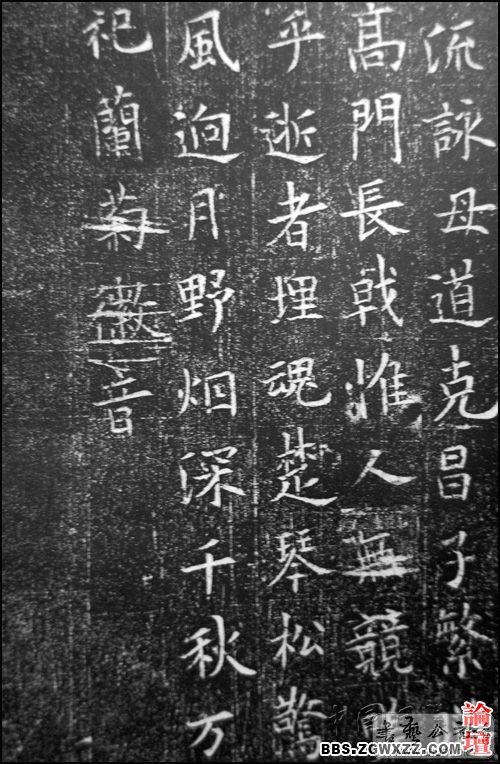 流詠母道克昌子繁
髙門長戟惟人無競
乎逝者埋魂楚琴松驚
風逈月野烟深千秋万
祀蘭菊徽音
論壇
BBS.ZGWXZZ.COM